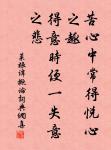 苦心中常得悅心
之趣
得意時便一失意
之悲
菜根譚概論詞典網